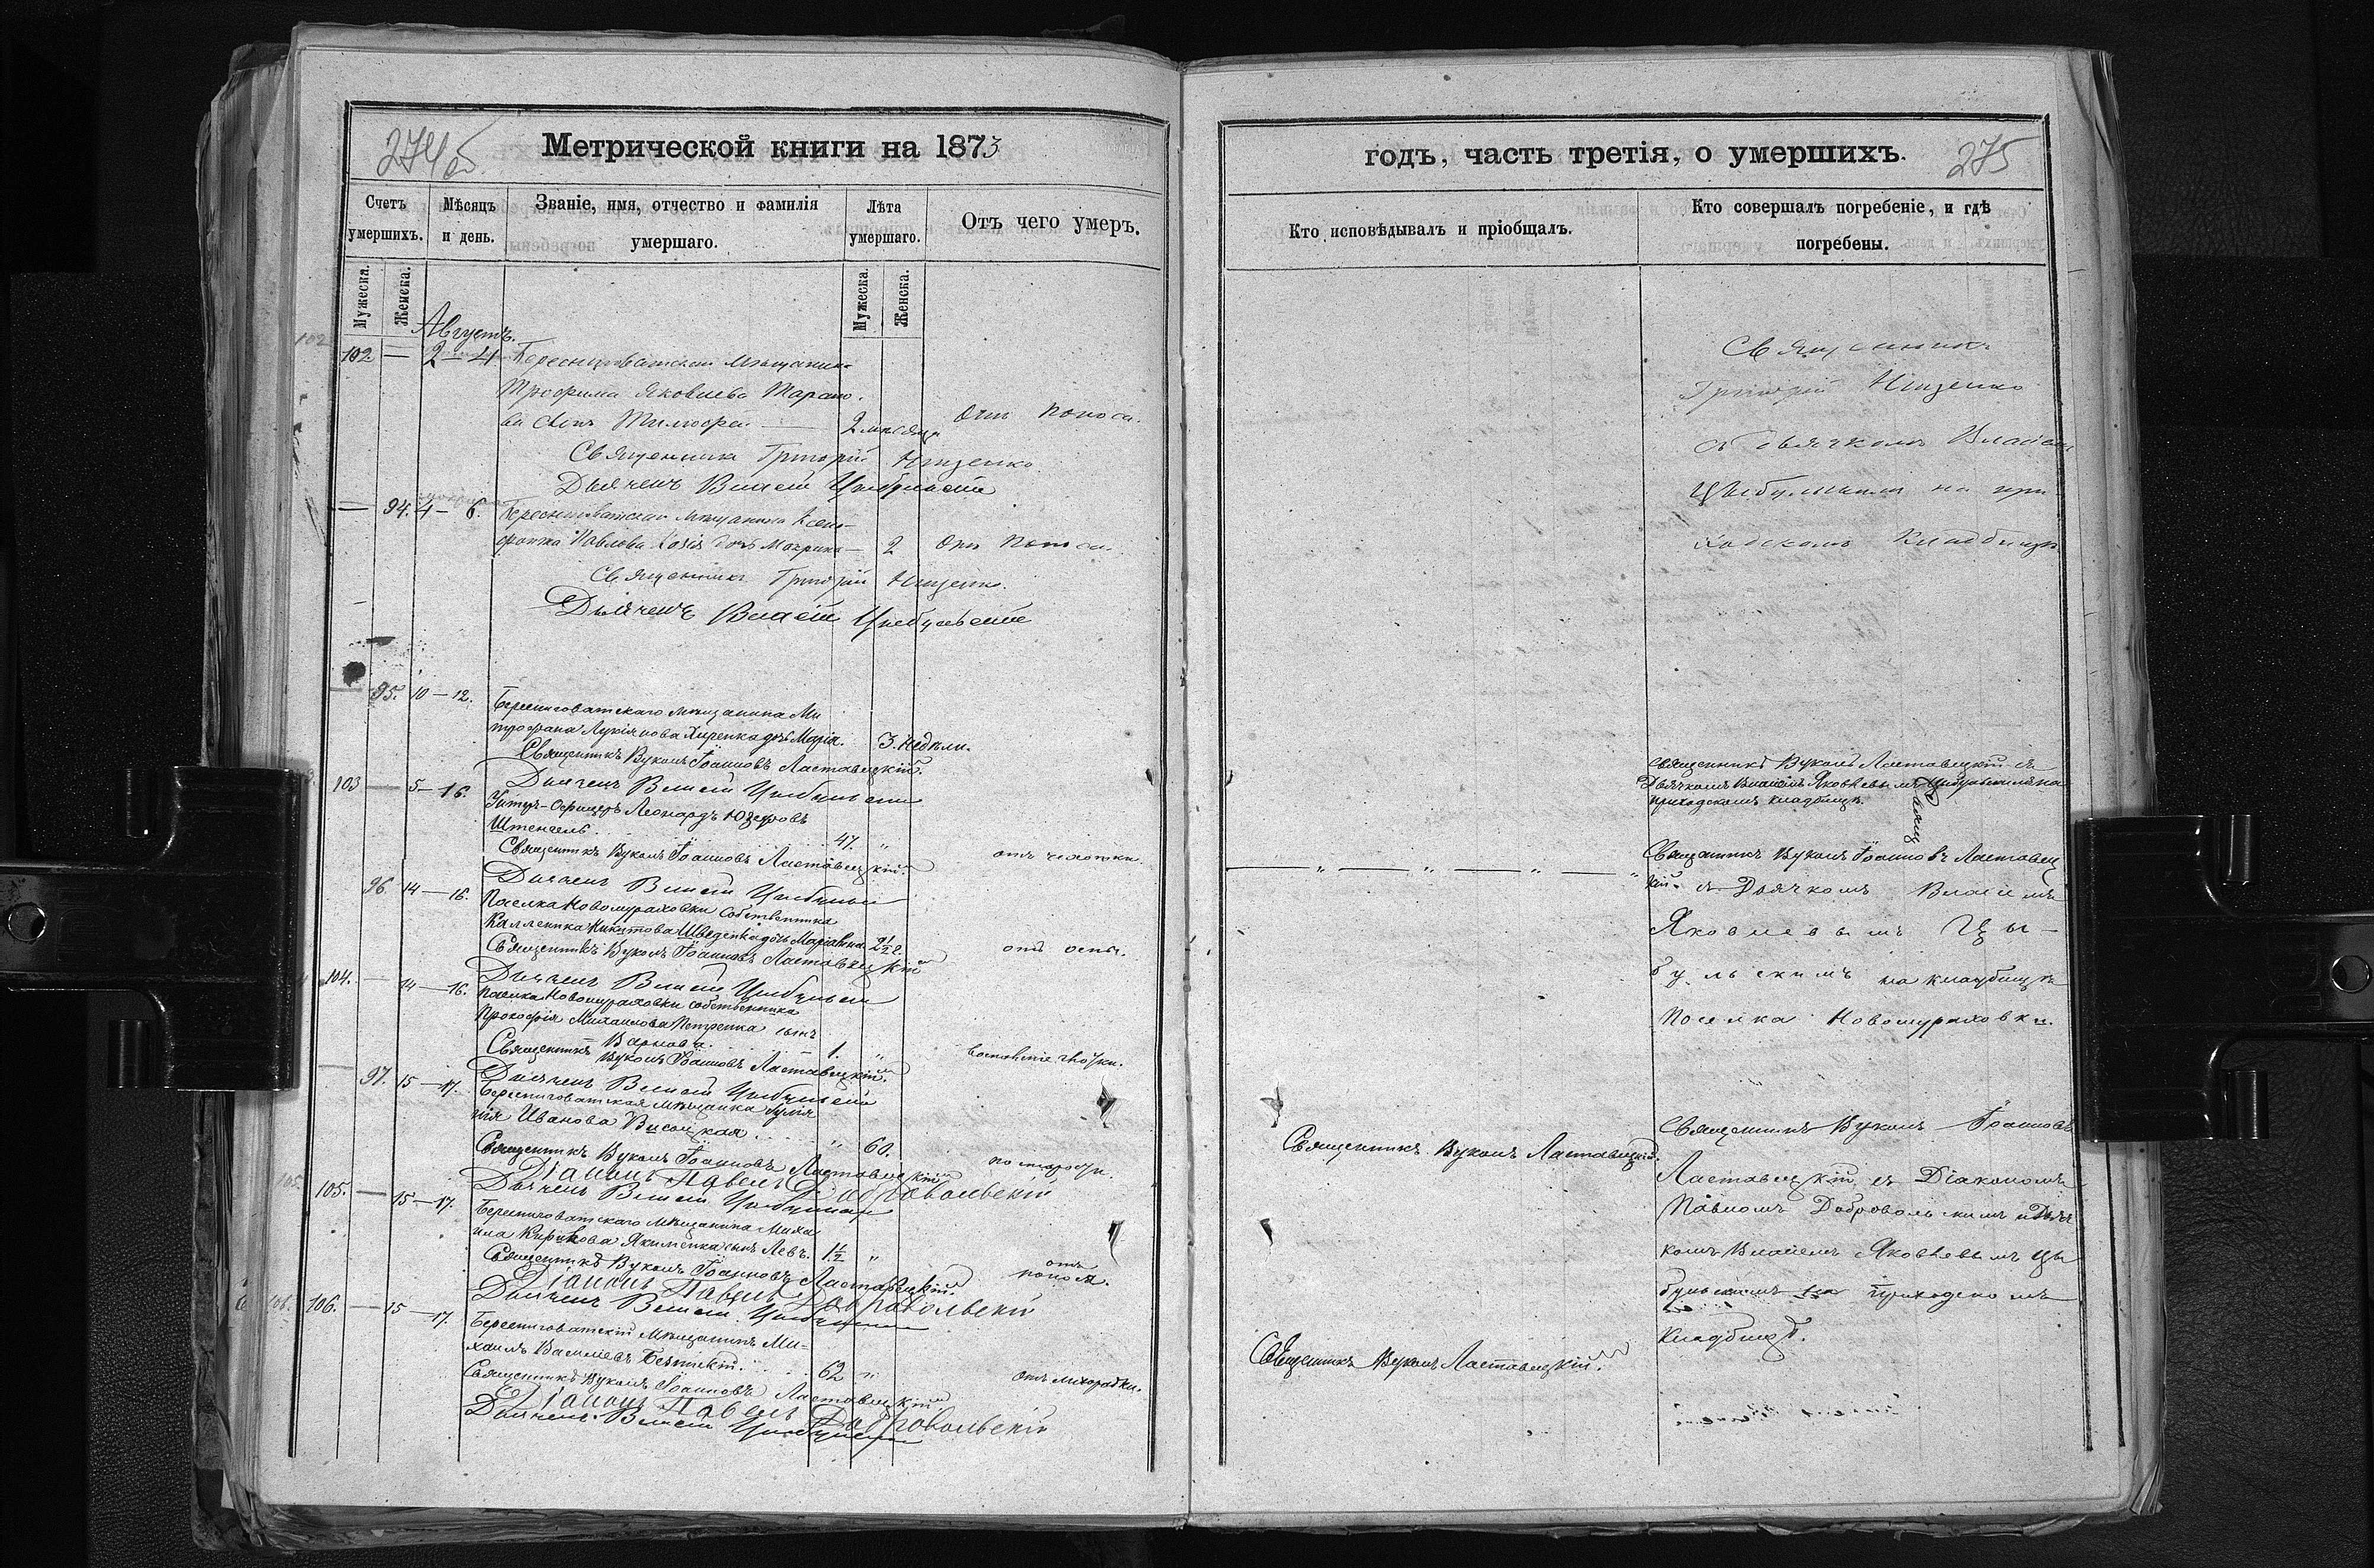 274об
Метрической книги на 1873
Счетъ умершихъ.
Мѣсяцъ и день.
Званіе, имя, отчество и фамилія умершаго.
Лѣта умершаго.
Отъ чего умеръ.
Мужеска.
Женска.
Мужеска.
Женска.
Августъ.
102 — 2 — 4. Береснеговатскаго мѣщанина
Трофима Яковлева Тарано-
ва сынъ Тимофей — 2 мѣсяца Отъ поноса.
Священникъ Григорій Нищенко
Дьячекъ Власій Цыбульскій
— 94. 4 — 6. мѣщанина Ксено-
фонта Павлова дочь — 2 Отъ поноса.
Священникъ Григорій Нищенко.
Дьячекъ Власій Цыбульскій
— 95. 10 — 12. Береснеговатскаго мѣщанина Ми
трофана Лукіянова дочь Марія. 3. недѣли.
Священникъ Вуколъ Іоанновъ Ластовецкій.
Дьячекъ Власій Цыбульскій
103 — 5 — 16. Унтеръ-Офицеръ Леонардъ Юзефовъ
Штенгель 47. „ отъ чахотки.
Священникъ Вуколъ Іоанновъ Ластовецкій.
Дьячекъ Власій Цыбульскій
96 14 — 16. Поселка Новомураховки собственника
Никитова Шведенка дочь 2½ г. отъ оспы.
Священникъ Вуколъ Іоанновъ Ластовецкій
Дьячекъ Власій Цыбульскій
104. — 14 — 16. Поселка Новомураховки собственника
Прокофія Михаилова Петренка сынъ
1. „
Священникъ Вуколъ Іоанновъ Ластовецкій.
Дьячекъ Власій Цыбульскій
— 97. 15 — 17. Береснеговатская мѣщанка
Иванова Висоцкая. „ 60. по старости.
Священникъ Вуколъ Іоанновъ Ластовецкій
Діаконъ Павелъ Добровольскій
Дьячекъ Власій Цыбульскій
105. — 15 — 17. Береснеговатскаго мѣщанина Миха
ила Кирикова Якименка сынъ Левъ. 1½ „ отъ поноса.
Священникъ Вуколъ Іоанновъ Ластовецкій.
Діаконъ Павелъ Добровольскій
Дьячекъ Власій Цыбульскій
106. — 15 — 17. Береснеговатскій мѣщанинъ Ми-
хаилъ Василіевъ 62 „ отъ лихорадки.
Священникъ Вуколъ Іоанновъ Ластовецкій
Діаконъ Павелъ Добровольскій
Дьячекъ Власій Цыбульскій
годъ, часть третія, о умершихъ.
275
Кто исповѣдывалъ и пріобщалъ.
Кто совершалъ погребеніе, и гдѣ погребены.
Священникъ
Григорій Нищенко
съ дьячкомъ Власіемъ
Цыбульскимъ на при
ходскомъ кладбищѣ
Священникъ Вуколъ Ластовецкій съ
Дьячкомъ Власіемъ Яковлевымъ Цыбульскимъ на
приходскомъ кладбищѣ.
Священникъ Вуколъ Іоанновъ Ластовец
кій съ Дьячкомъ Власіемъ
Яковлевымъ Цы-
бульскимъ на кладбищѣ
поселка Новомураховки.
Священникъ Вуколъ Ластовецкій.
Священникъ Вуколъ Іоанновъ
Ластовецкій съ Діакономъ
Павломъ Добровольскимъ и Дьяч
комъ Власіемъ Яковлевымъ Цы
бульскимъ на приходскомъ
кладбищѣ.
Священникъ Вуколъ Ластовецкій.